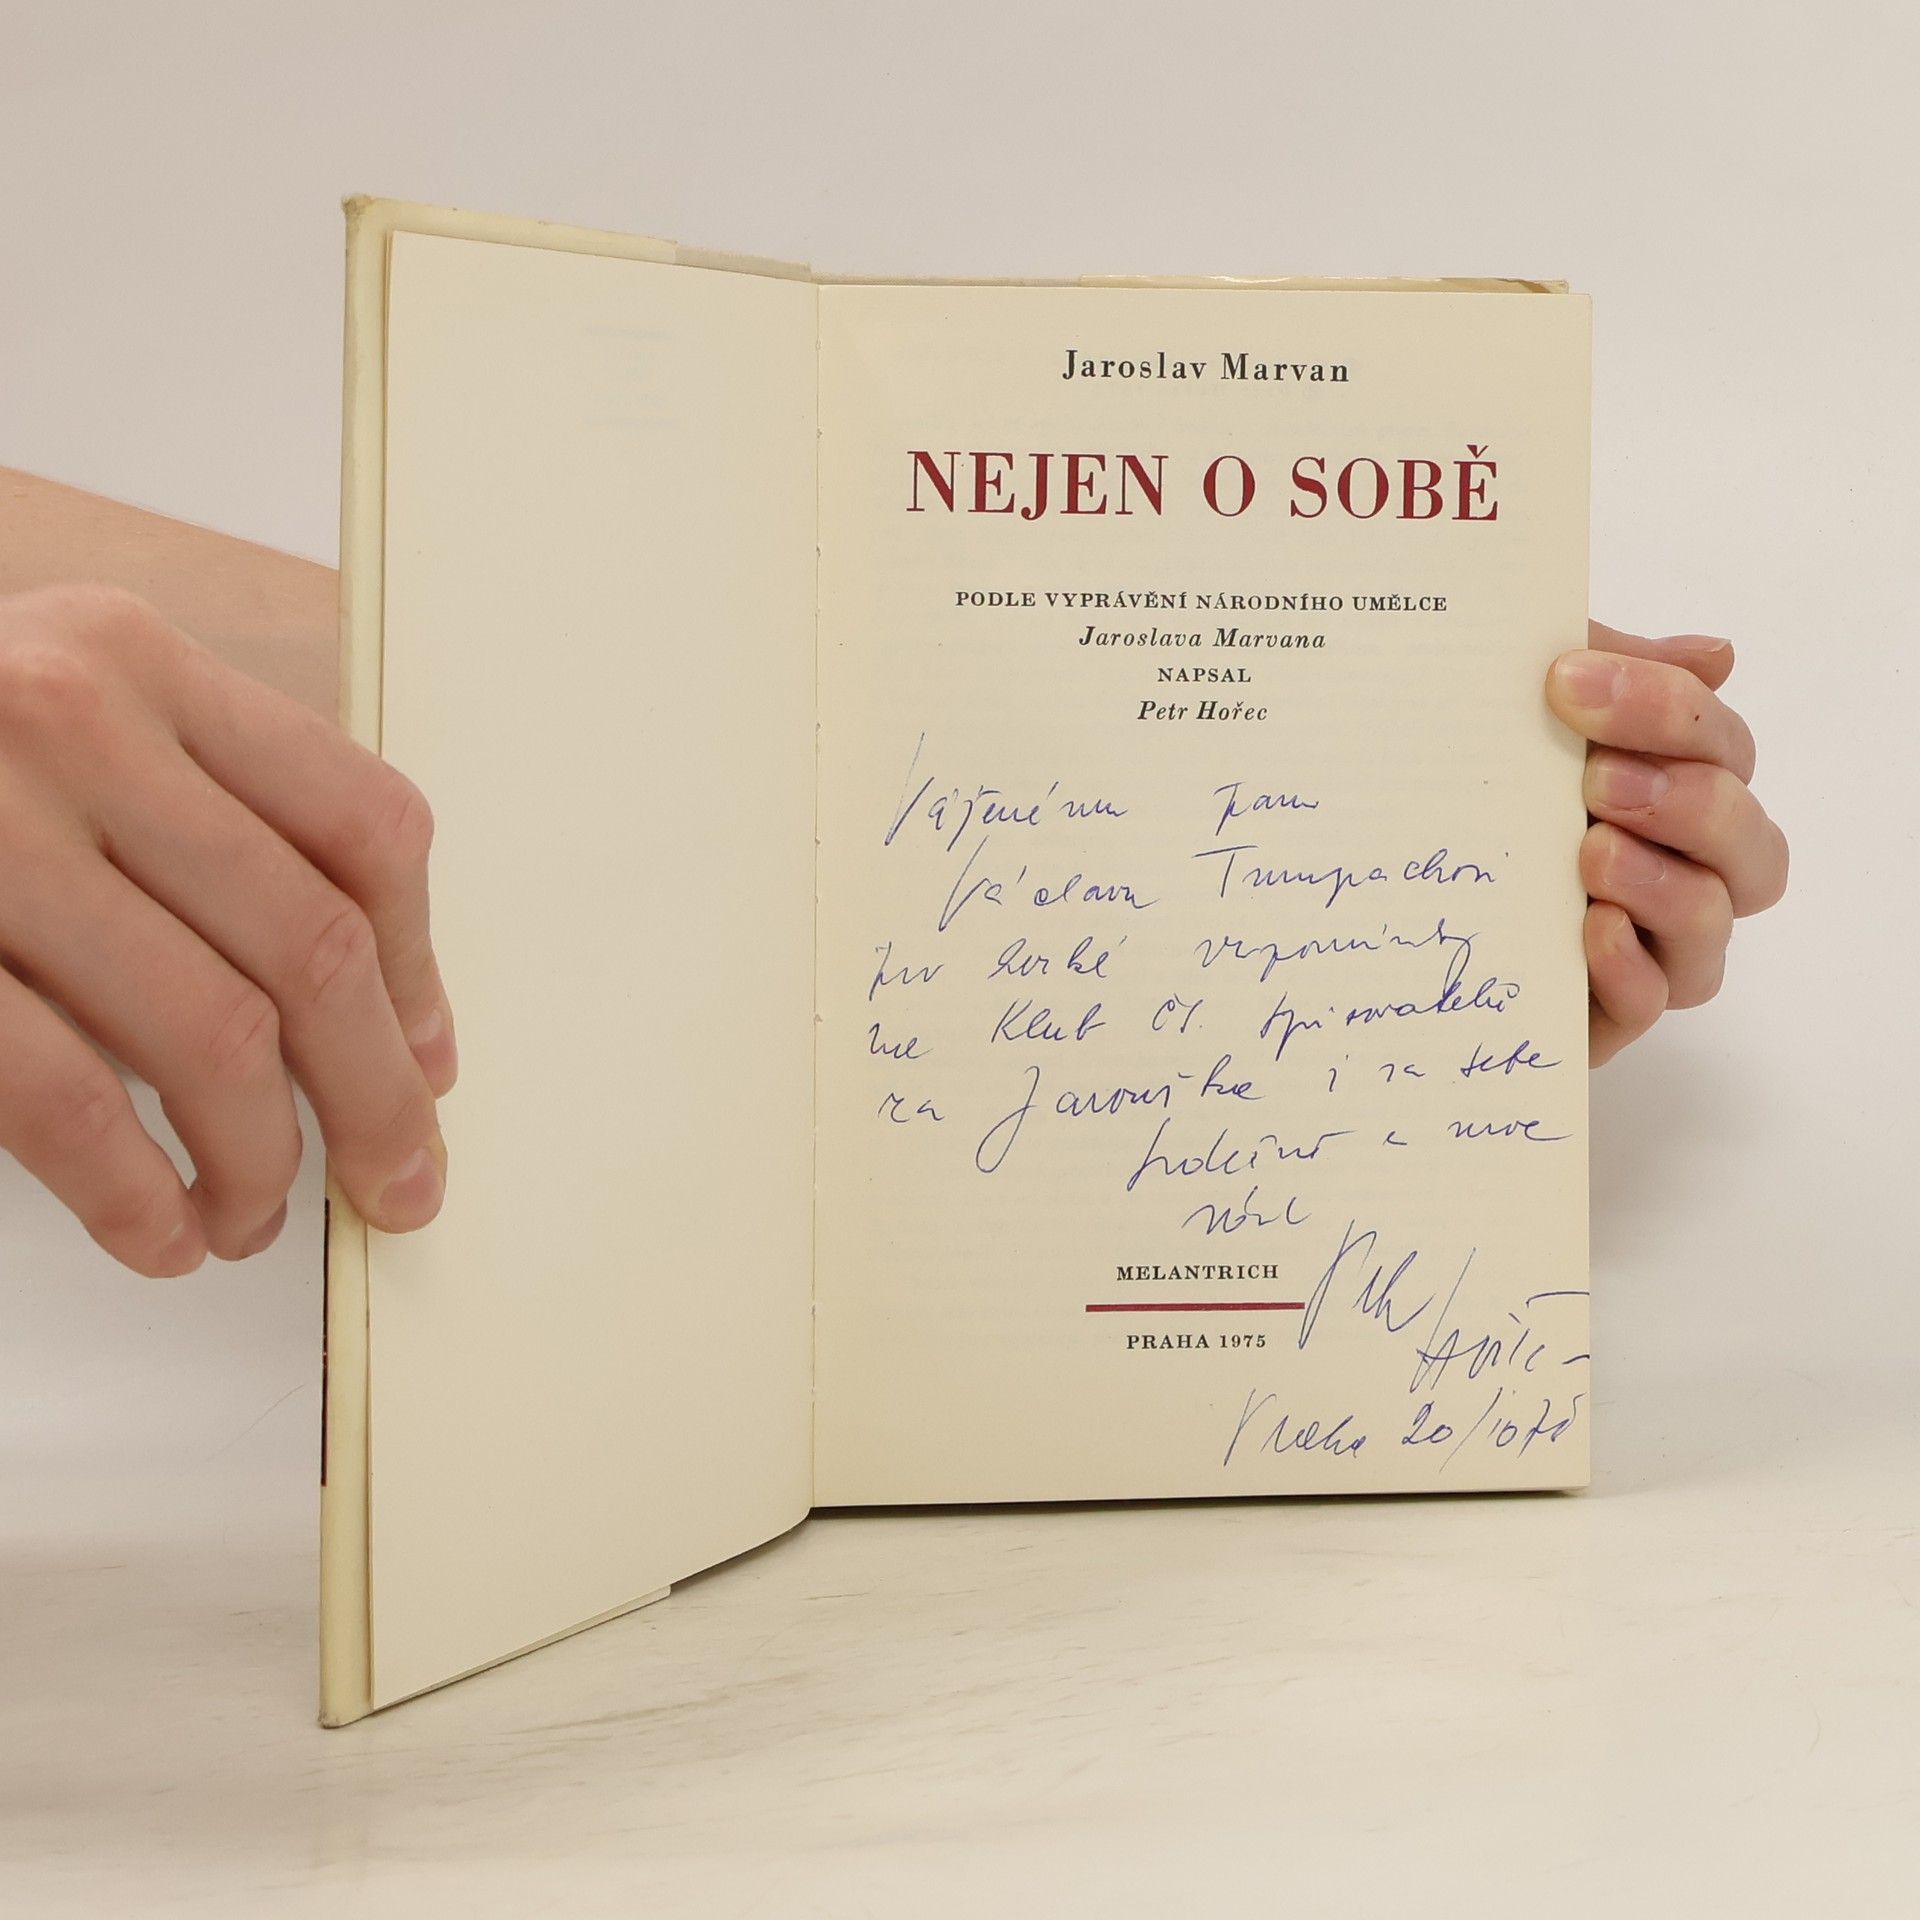 Jaroslav Marvan
NEJEN O SOBĚ
PODLE VYPRÁVĚNÍ NÁRODNÍHO UMĚLCE
Jaroslava Marvana
NAPSAL
Petr Hořec
Váženému panu
Václavu Trumpachovi
pro hezké vzpomínky
na Klub čs. spisovatelů
za Jarouška i za sebe
srdečně a moc
MELANTRICH
Petr Hořec
PRAHA 1975
Praha 20/10